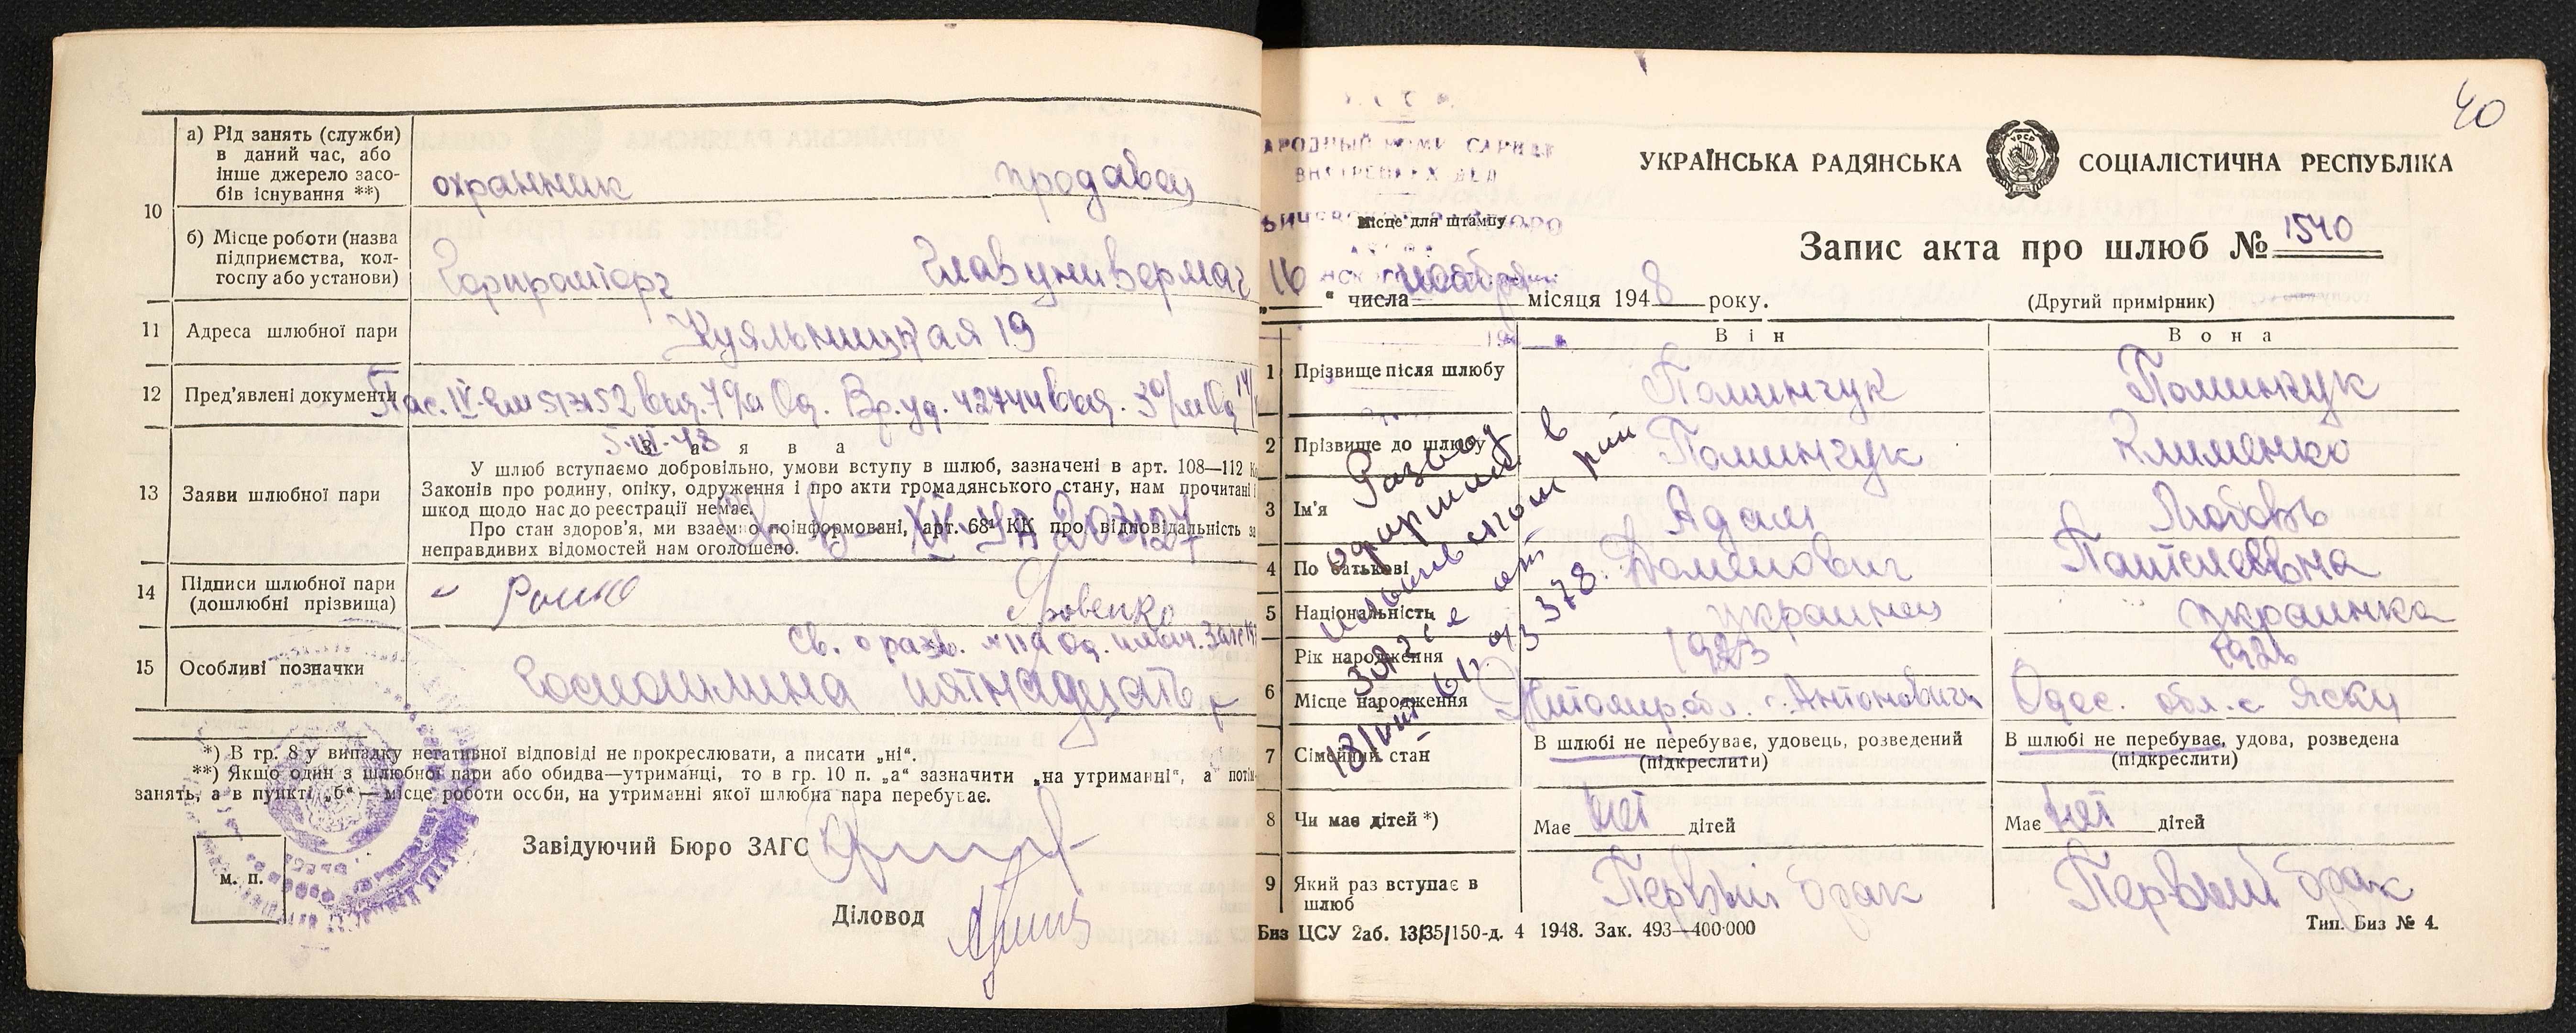 а) Рід занять (служби)
в даний час, або
інше джерело засо-
бів існування **)
охранник продавец
10
б) Місце роботи (назва
підприємства, кол-
госпу або установи)
Горпромторг Главунивермаг
11 Адреса шлюбної пари Куяльницкая 19
12 Пред'явлені документи
13 Заяви шлюбної пари
З а я в а
У шлюб вступаємо добровільно, умови вступу в шлюб, зазначені в арт. 108—112
Законів про родину, опіку, одруження і про акти громадянського стану, нам прочитані
шкод щодо нас до реєстрації немає.
Про стан здоров'я, ми взаємно поінформовані, арт. 68¹ КК про відповідальність за
неправдивих відомостей нам оголошено.
14 Підписи шлюбної пари
(дошлюбні прізвища)
15 Особливі позначки
Госпошлина пятнадцать р
*) В гр. 8 у випадку негативної відповіді не прокреслювати, а писати „ні“.
**) Якщо один з шлюбної пари або обидва—утриманці, то в гр. 10 п. „а“ зазначити „на утриманні“, а потім
занять, а в пункті „б“ — місце роботи особи, на утриманні якої шлюбна пара перебуває.
Завідуючий Бюро ЗАГС
м. п.
Діловод
40
УКРАЇНСЬКА РАДЯНСЬКА СОЦІАЛІСТИЧНА РЕСПУБЛІКА
УРСР
Місце для штампу
Запис акта про шлюб № 1540
„16“ числа ноября місяця 1948 року.
(Другий примірник)
Він Вона
1 Прізвище після шлюбу Поминчук Поминчук
2 Прізвище до шлюбу Поминчук Клименко
3 Ім'я Адам Любовь
4 По батькові Доменович Пантелеевна
5 Національність украинец украинка
Рік народження 1923 1926
6
Місце народження Житомир. обл. с. Антоновичи Одес. обл. с. Яски
7 Сімейний стан
В шлюбі не перебуває, удовець, розведений
(підкреслити)
В шлюбі не перебуває, удова, розведена
(підкреслити)
8 Чи має дітей *) Має нет дітей Має нет дітей
9 Який раз вступає в
шлюб
Первый брак Первый брак
Биз ЦСУ 2аб. 13/35/150-д. 4 1948. Зак. 493—400·000
Тип. Биз № 4.